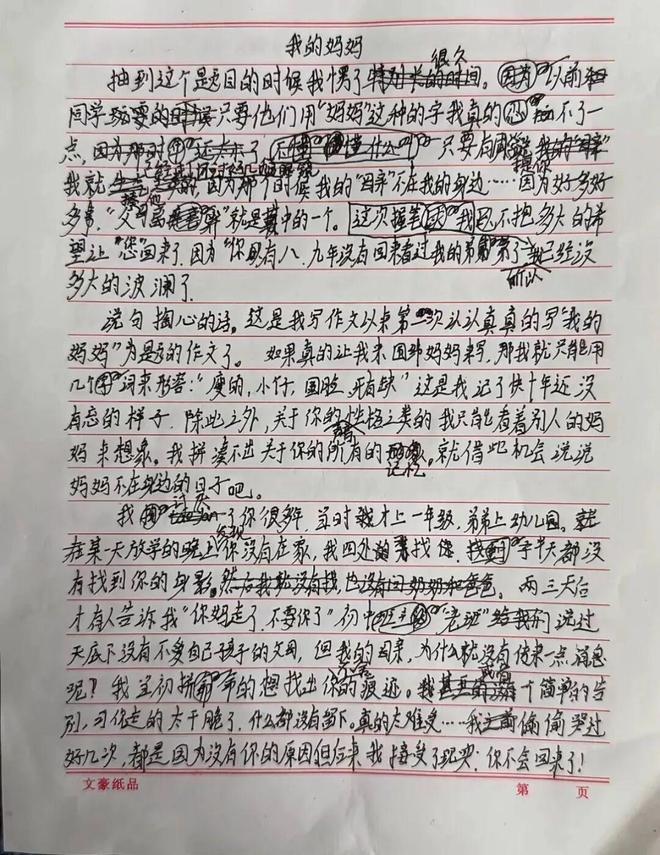 我的妈妈
抽到这个题目的时候我愣了很久。因为以前和
同学玩耍的时候只要他们用"妈妈"这种的字我真的忍不了一
点,因为那时 只要有同学
我就 因为那个时候我的"母亲"不在我的身边……因为好多好
多事, 就是其中的一个。这次提笔 我已不抱多大的希
望让"您"回来了,因为"你"已有八、九年没有回来看过我 所以我已经没
多大的波澜了
说句掏心的话。这是我写作文以来第一次认认真真的写"我的
妈妈"为题的作文了。如果真的让我来 妈妈来写,那我就只能用
几个 词来形容:"瘦的,小个, 圆脸, 牙有缺"这是我记了快十年还没
有忘的样子,除此之外,关于你的性格之类的我只能看着别人的妈
妈来想象。我拼凑不出关于你的所有的记忆。就借此机会说说
妈妈不在身边的日子吧。
我 了你很多年,当时我才上一年级,弟弟上幼儿园。就
在某一天放学的晚上发现你没有在家,我四处的找 找了半天都没
有找到你的身影,然后我就没有找,也没有问奶奶和爸爸。两三天后
才有人告诉我"你妈走了,不要你了"初中班主任"老班"给我们说过
天底下没有不爱自己孩子的父母,但我的母亲,为什么就没有传来一点消息
呢?我当初拼命的想找出你的痕迹。我 一个简单的告
别,可你走的太干脆了,什么都没有留下。真的太难受……我之前偷偷哭过
好几次,都是因为没有你的原因但后来,我接受了现实:你不会回来了!
文豪纸品
第 页